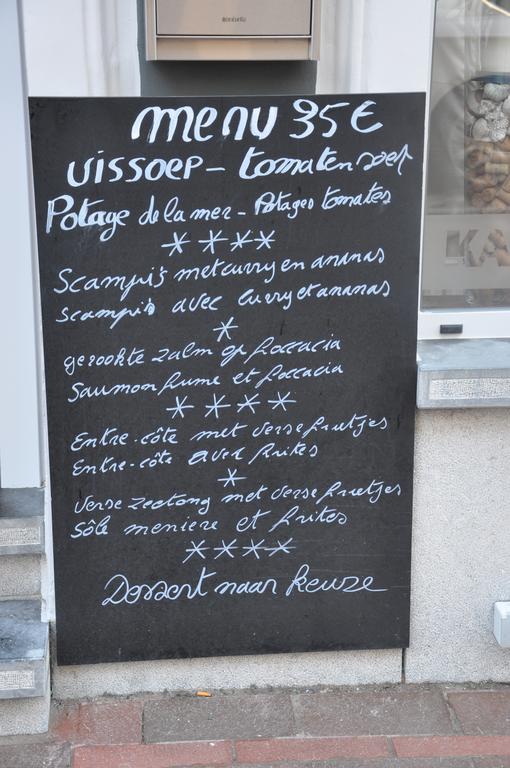 menu 35€
VISSOEP - tomaten soep
Potage de la mer - Potages tomates
****
Scampi's met curry en ananas
Scampi's avec curry et ananas
*
gerookte zalm op foccacia
Saumon fume et foccacia
****
Entre-côte met verse frietjes
Entre-côte avec frites
*
Verse zeetong met verse frietjes
Sôle meniere et frites
****
Dessert naar keuze
KA